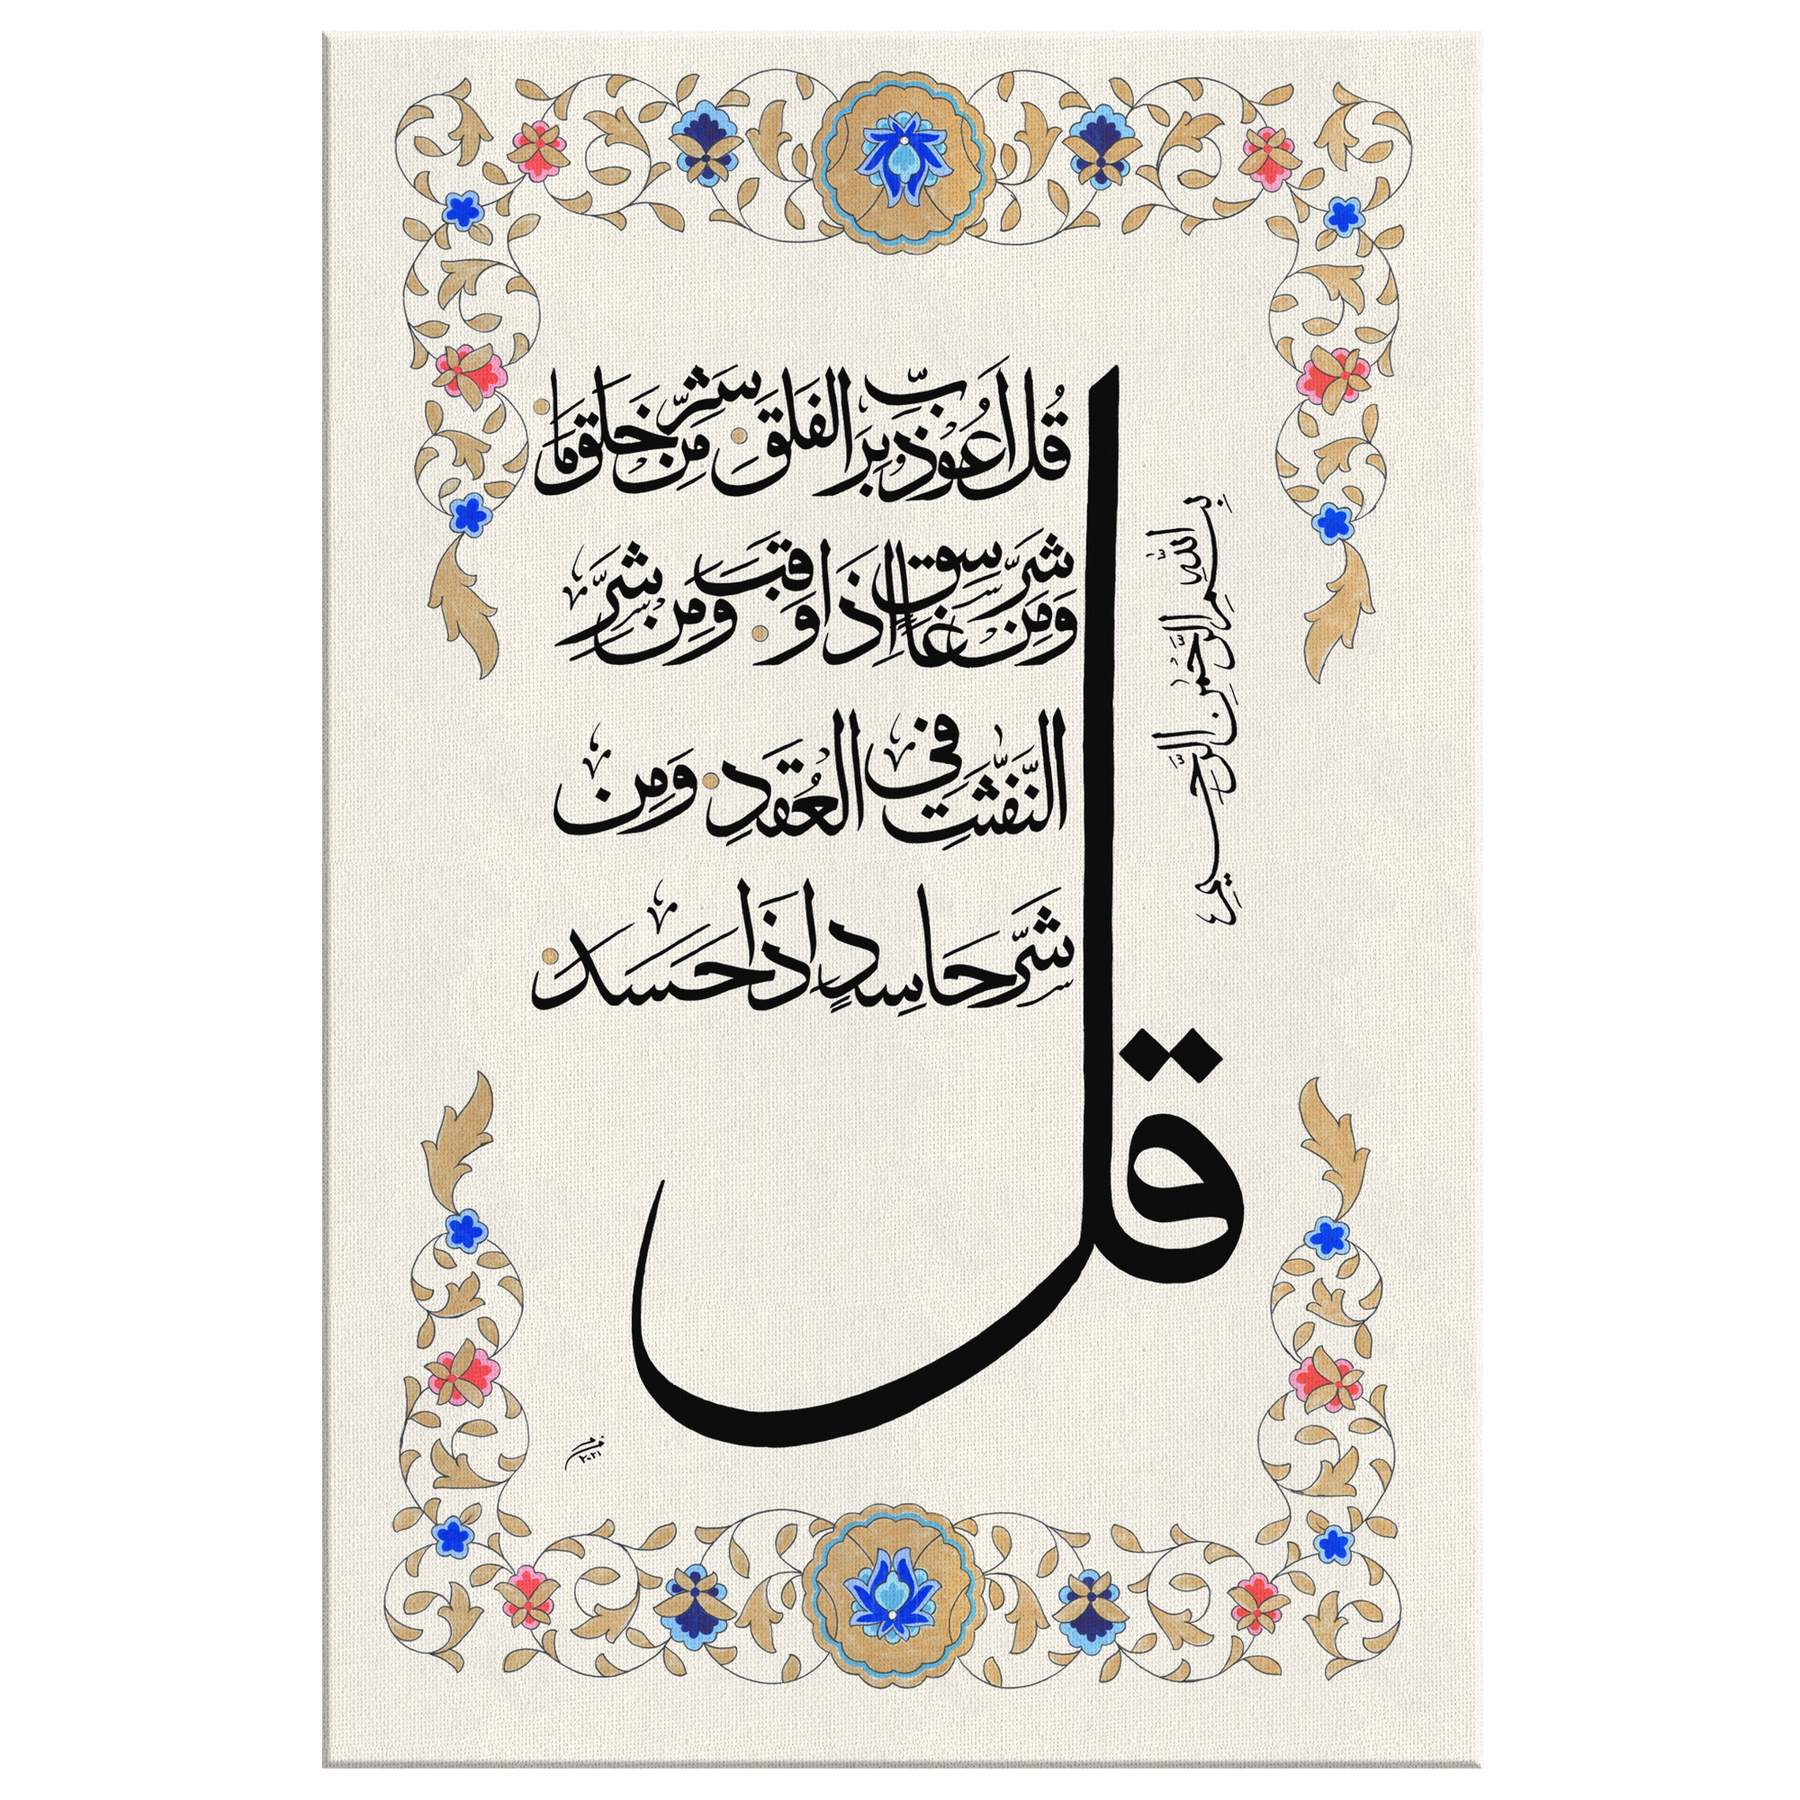 بِسْمِ اللهِ الرَّحْمٰنِ الرَّحِيمِ
قُلْ أَعُوذُ بِرَبِّ الْفَلَقِ مِنْ شَرِّ مَا خَلَقَ
وَمِنْ شَرِّ غَاسِقٍ إِذَا وَقَبَ وَمِنْ شَرِّ
النَّفّٰثٰتِ فِي الْعُقَدِ وَمِنْ
شَرِّ حَاسِدٍ إِذَا حَسَدَ
قل
٢٠٢١